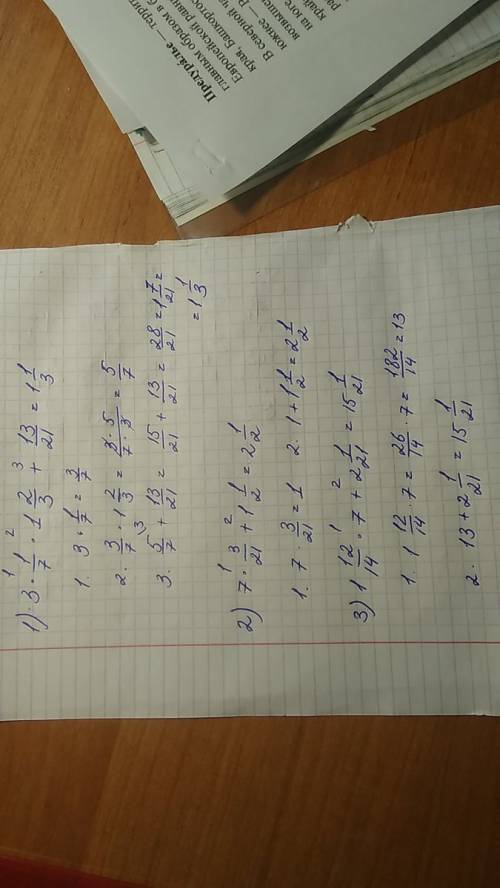 Предуралье — террит
главным образом в б
Европейской равни
края, Башкортос
В северной ч
южнее — В
возвыше
на юге
край
ра
1) 3 · 1/7 · 1 2/3 + 13/21 = 1 1/3
1. 3 · 1/7 = 3/7
2. 3/7 · 1 2/3 = 3 · 5/7 · 3 = 5/7
3. 5/7 + 13/21 = 15/21 + 13/21 = 28/21 = 1 7/21 =
= 1 1/3
2) 7 · 3/21 + 1 1/2 = 2 1/2
1. 7 · 3/21 = 1 2. 1 + 1 1/2 = 2 1/2
3) 1 12/14 · 7 + 2 1/21 = 15 1/21
1. 1 12/14 · 7 = 26/14 · 7 = 182/14 = 13
2. 13 + 2 1/21 = 15 1/21